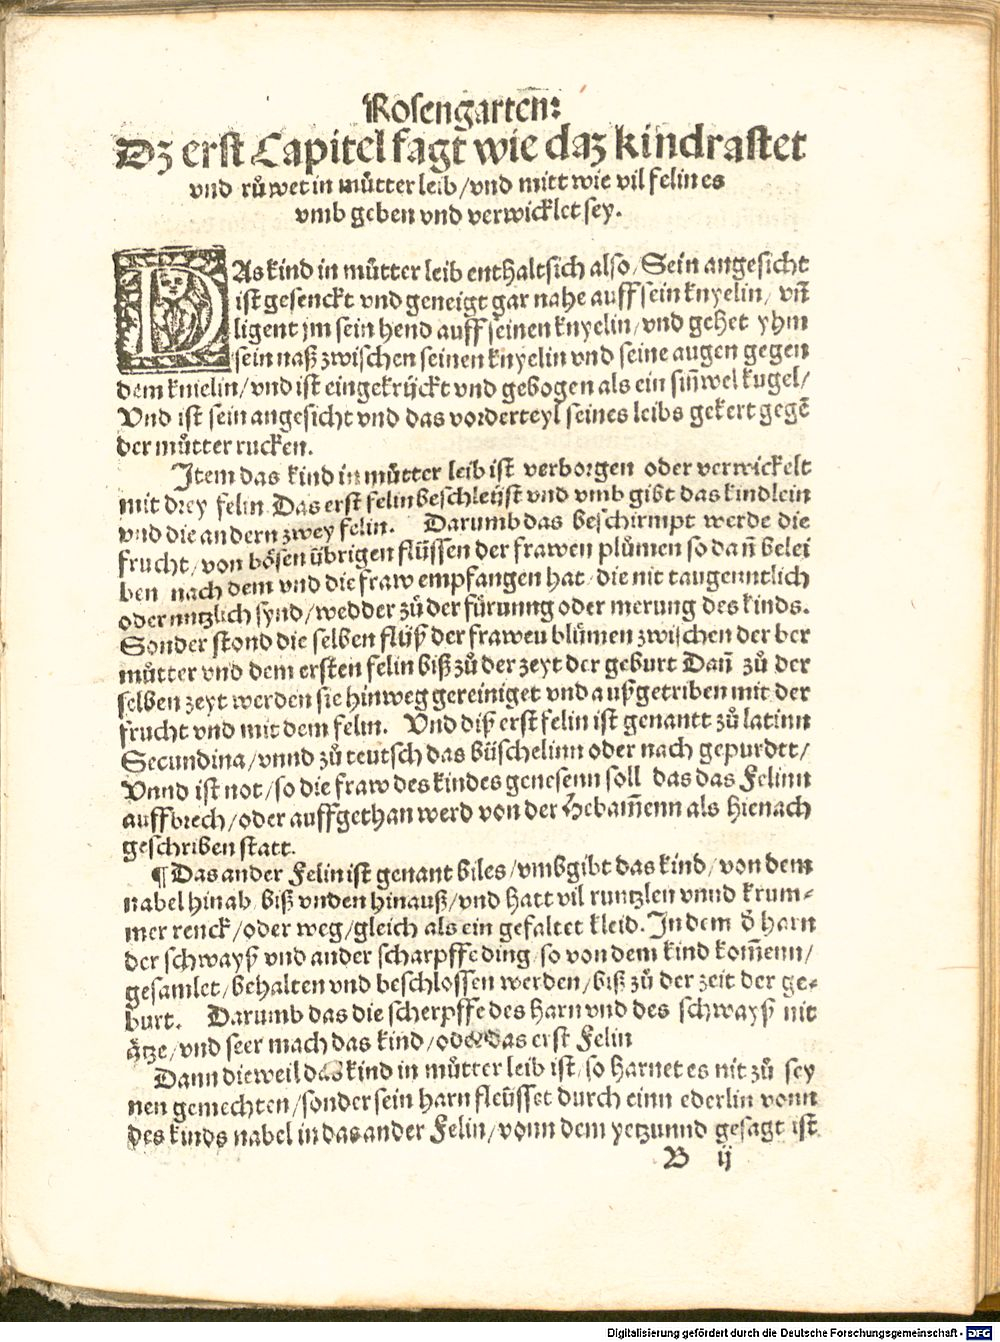 Rosengarten:
Dz erst Capitel sagt wie daz kindrastet
vnd růwet in můtter leib/vnd mitt wie vil felin es
vmb geben vnd verwicklet sey.
DAs kind in můtter leib enthalt sich also/Sein angesicht
ist gesenckt vnd geneigt gar nahe auff sein knyelin/ vn̄
ligent jm sein hend auff seinen knyelin/vnd gehet yhm
sein naß zwischen seinen knyelin vnd seine augen gegen
dem knielin/vnd ist eingekrückt vnd gebogen als ein sin̄wel kugel/
Vnd ist sein angesicht vnd das vorderteyl seines leibs gekert gegē
der můtter rucken.
Item das kind in můtter leib ist verborgen oder verwickelt
mit drey felin Das erst felin beschleüst vnd vmb gibt das kindlein
vnd die andern zwey felin. Darumb das beschirmpt werde die
frucht/von bösen übrigen flüssen der frawen plůmen so dan̄ belei
ben nach dem vnd die fraw empfangen hat/die nit taugenntlich
oder nutzlich synd/wedder zů der fürunng oder merung des kinds.
Sonder stond die selben flüß der frawen blůmen zwischen der ber
můtter vnd dem ersten felin biß zů der zeyt der geburt Dan̄ zů der
selben zeyt werden sie hinweg gereiniget vnd außgetriben mit der
frucht vnd mit dem felin. Vnd diß erst felin ist genantt zů latinn
Secundina/vnnd zů teutsch das büschelinn oder nach gepurdtt/
Vnnd ist not/so die fraw des kindes genesenn soll das das Felinn
auffbrech/oder auffgethan werd von der Hebam̄enn als hienach
geschriben statt.
¶Das ander Felin ist genant biles/vmbgibt das kind/von dem
nabel hinab biß vnden hinauß/vnd hatt vil runtzlen vnnd krum-
mer renck/oder weg/gleich als ein gefaltet kleid. In dem ď harn
der schwayß vnd ander scharpffe ding/so von dem kind kom̄enn/
gesamlet/behalten vnd beschlossen werden/biß zů der zeit der ge-
burt. Darumb das die scherpffe des harn vnd des schwayß nit
ätze/vnd seer mach das kind/oder das erst Felin
Dann dieweil das kind in můtter leib ist/so harnet es nit zů sey
nen gemechten/sonder sein harn fleüsset durch einn ederlin vonn
des kinds nabel in das ander Felin/vonn dem yetzunnd gesagt ist
B ij
Digitalisierung gefördert durch die Deutsche Forschungsgemeinschaft - DFG